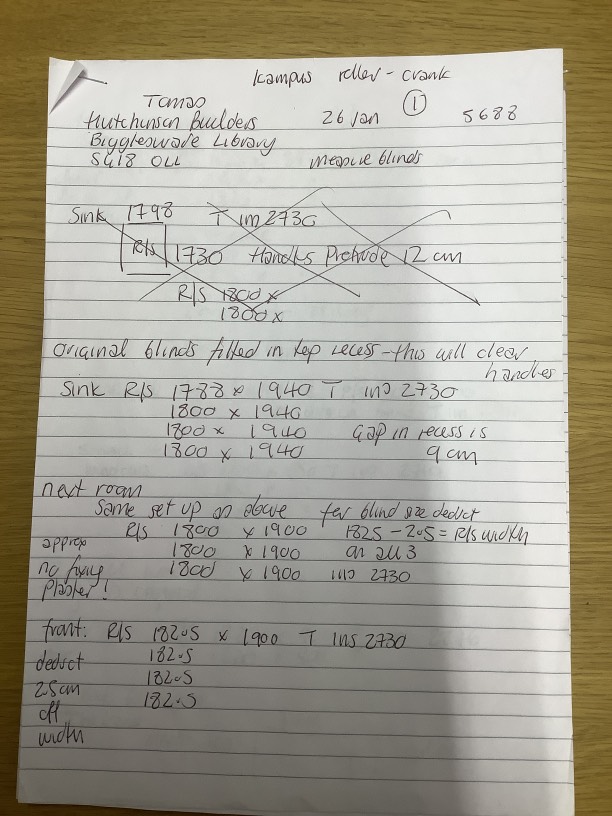 Kampus roller - crank
Tomas ①
Hutchinson Builders 26 Jan 5688
Biggleswade Library
SG18 0LL measure blinds
Sink 1798 T ins 2730
R/S 1730 Handles Protrude 12 cm
R/S 1800 x
1800 x
original blinds fitted in top recess - this will clear
handles
Sink R/S 1788 x 1940 T ins 2730
1800 x 1940
1800 x 1940 Gap in recess is
1800 x 1940 9 cm
next room
Same set up as above for blind size deduct
R/S 1800 x 1900 1825 - 2.5 = R/S width
approx 1800 x 1900 on all 3
no fixing 1800 x 1900 ins 2730
Plaster!
front: R/S 182.5 x 1900 T ins 2730
deduct 182.5
2.5cm 182.5
off 182.5
width